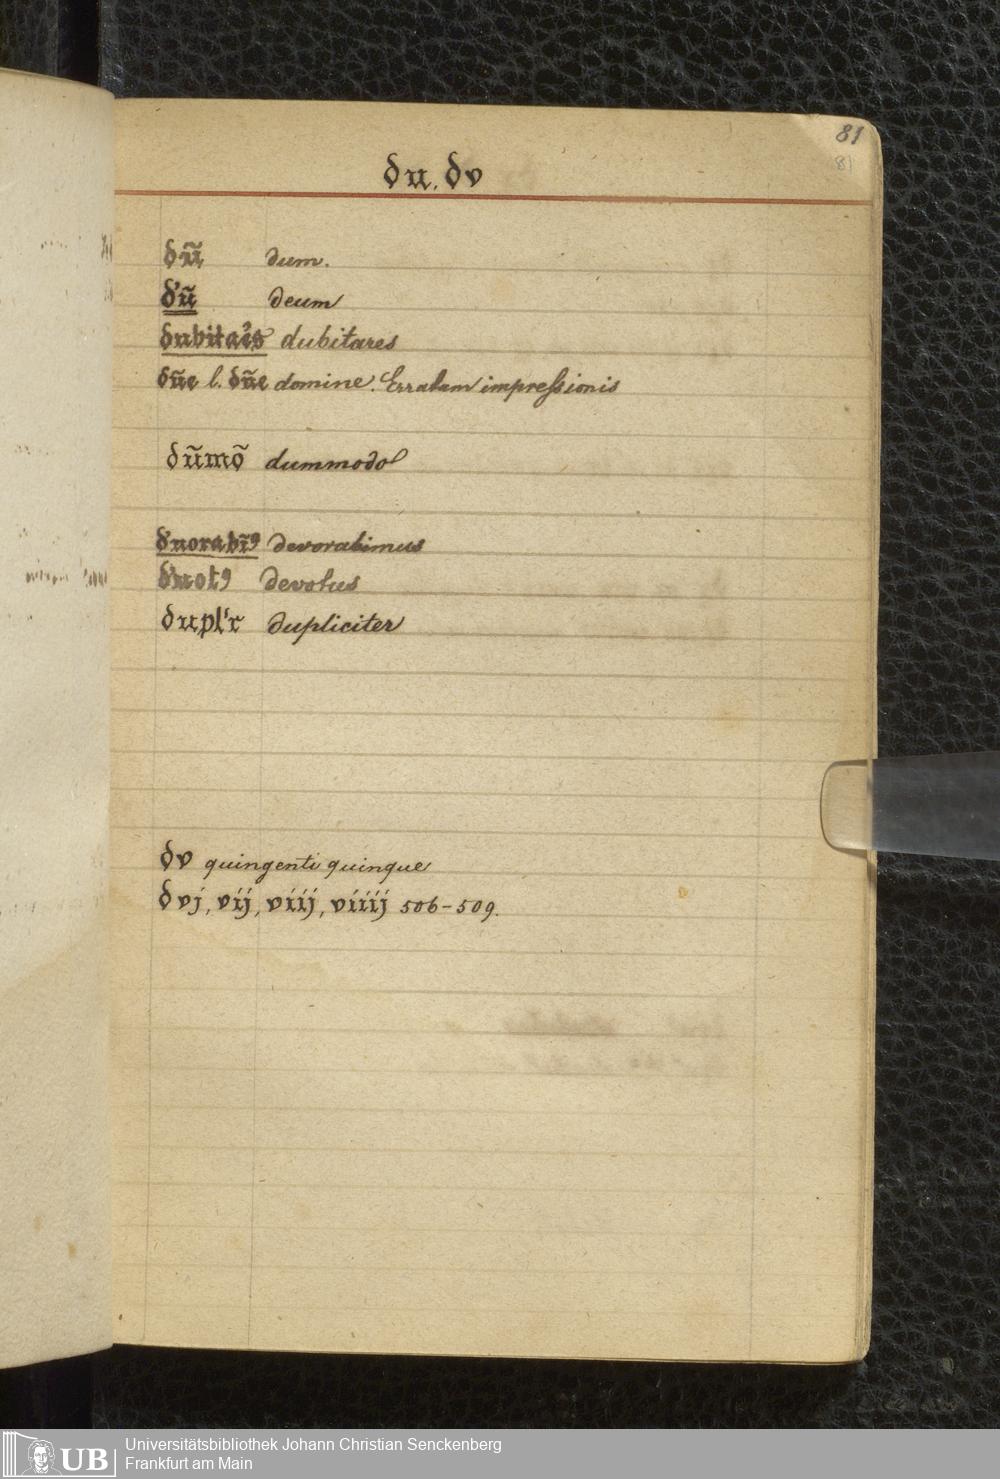 81
81
du, dv
dū dum.
d'ū deum
dubitaẽs dubitares
dūe l. dñe domine. Erratum impreſsionis
dūmō dummodo
d'uorabīꝰ devorabimus
d'uotꝰ devotus
dupl'r dupliciter
dv quingenti quinque
dvj, vij, viij, viiij 506-509.
UB Universitätsbibliothek Johann Christian Senckenberg
Frankfurt am Main